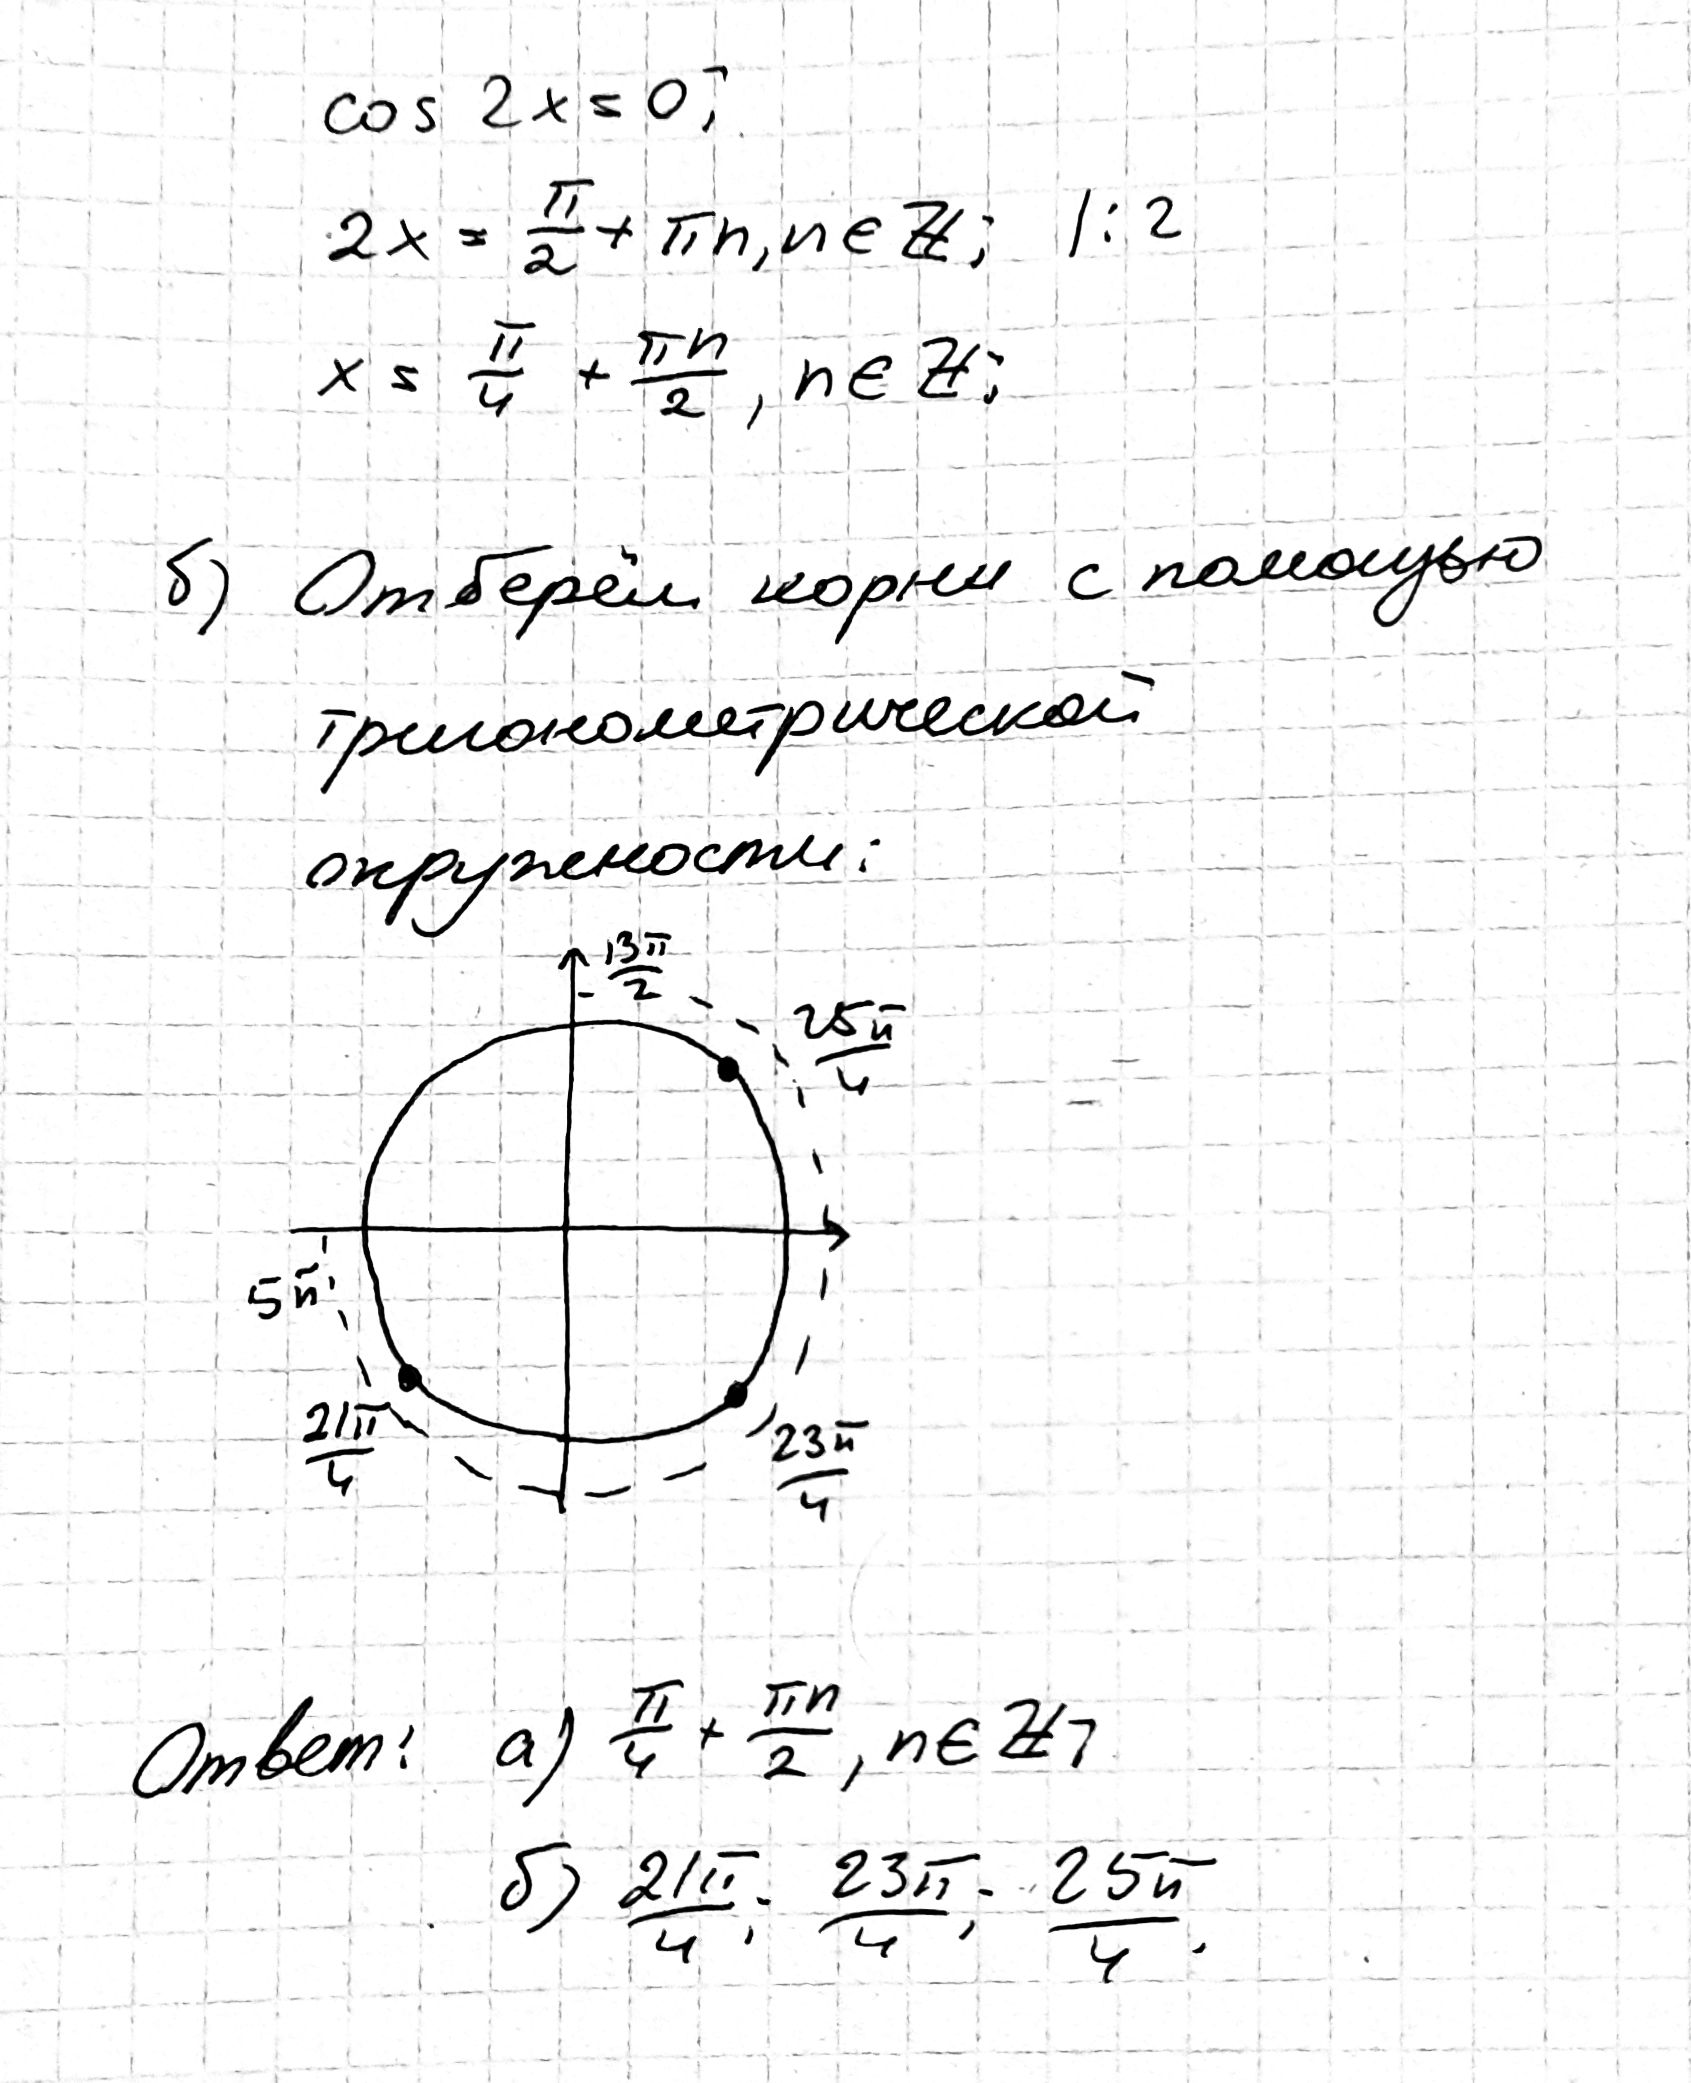 cos 2x = 0;
2x = π/2 + πn, n ∈ ℤ; |:2
x = π/4 + πn/2, n ∈ ℤ;
б) Отберём корни с помощью
тригонометрической
окружности:
13π/2
25π/4
5π
21π/4
23π/4
Ответ: а) π/4 + πn/2, n ∈ ℤ;
б) 21π/4; 23π/4; 25π/4.